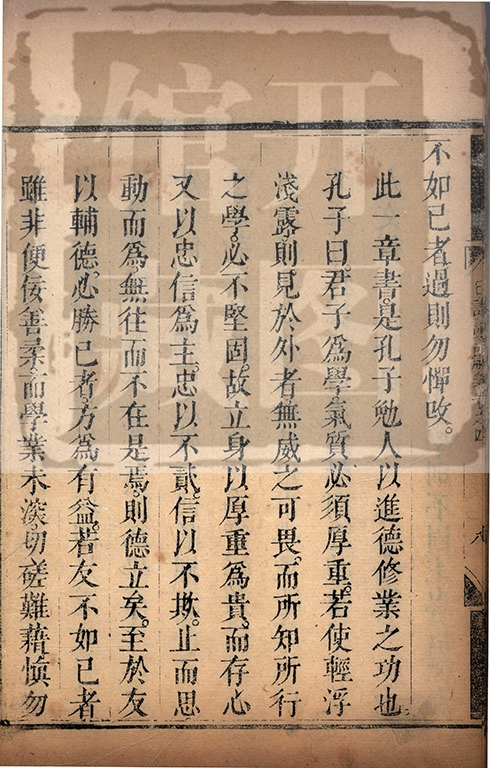 不如己者過則勿憚攺。
此一章書。是孔子勉人以進德修業之功也
孔子曰。君子為學。氣質必須厚重。若使輕浮
淺露。則見於外者無威之可畏。而所知所行
之學。必不堅固。故立身以厚重為貴。而存心
又以忠信為主。忠以不貳。信以不欺。止而思
動而為。無往而不在是焉。則德立矣。至於友
以輔德。必勝己者。方為有益。若友不如己者
雖非便佞善柔。而學業未深。切磋難藉。慎勿